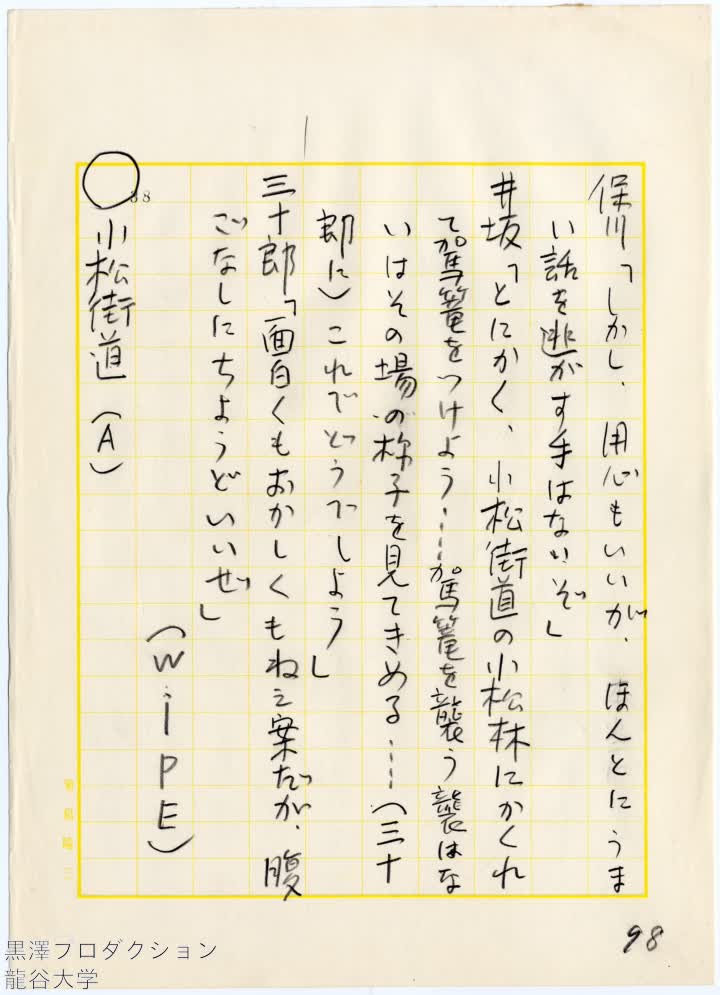 保川「しかし、用心もいいが、ほんとにうま
い話を逃がす手はないぞ」
井坂「とにかく、小松街道の小松林にかくれ
て駕篭をつけよう……駕篭を襲う襲はな
いはその場の様子を見てきめる……(三十
郎に)これでどうでしよう」
三十郎「面白くもおかしくもねえ案だが、腹
ごなしにちようどいいぜ」
(WIPE)
38
小松街道(A)
98
黒澤プロダクション
龍谷大学